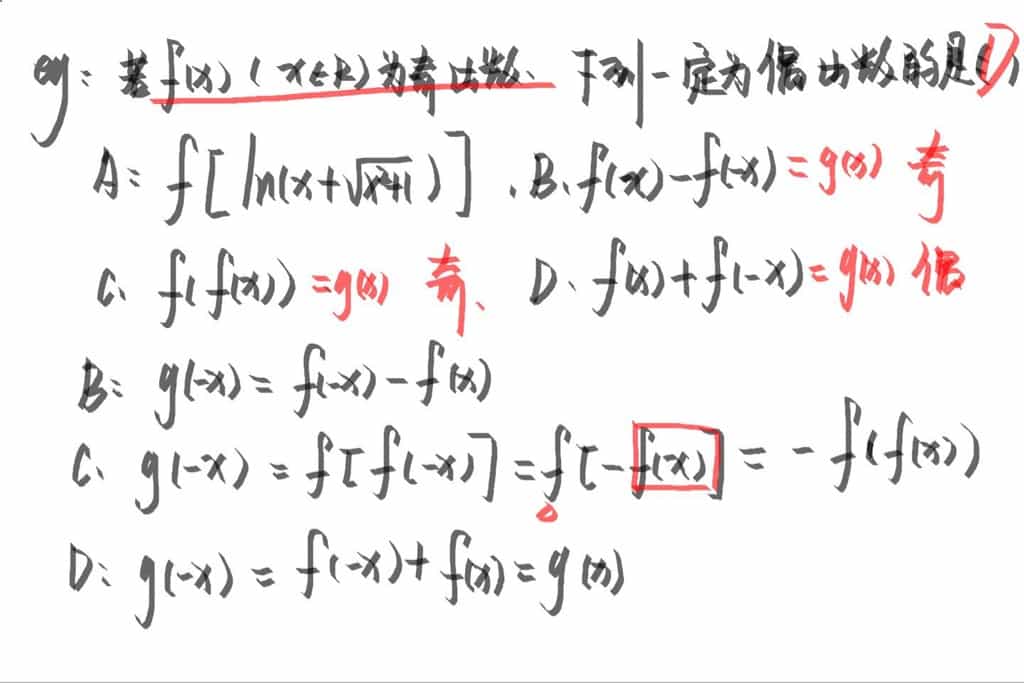 eg: 若f(x)(x∈R)为奇函数、下列一定为偶函数的是(D)
A: f[ln(x+√x²+1)]. B、f(x)-f(-x)=g(x) 奇
C、f(f(x))=g(x) 奇、 D、f(x)+f(-x)=g(x) 偶
B: g(-x)=f(-x)-f(x)
C、g(-x)=f[f(-x)]=f[-f(x)]=-f(f(x))
D: g(-x)=f(-x)+f(x)=g(x)